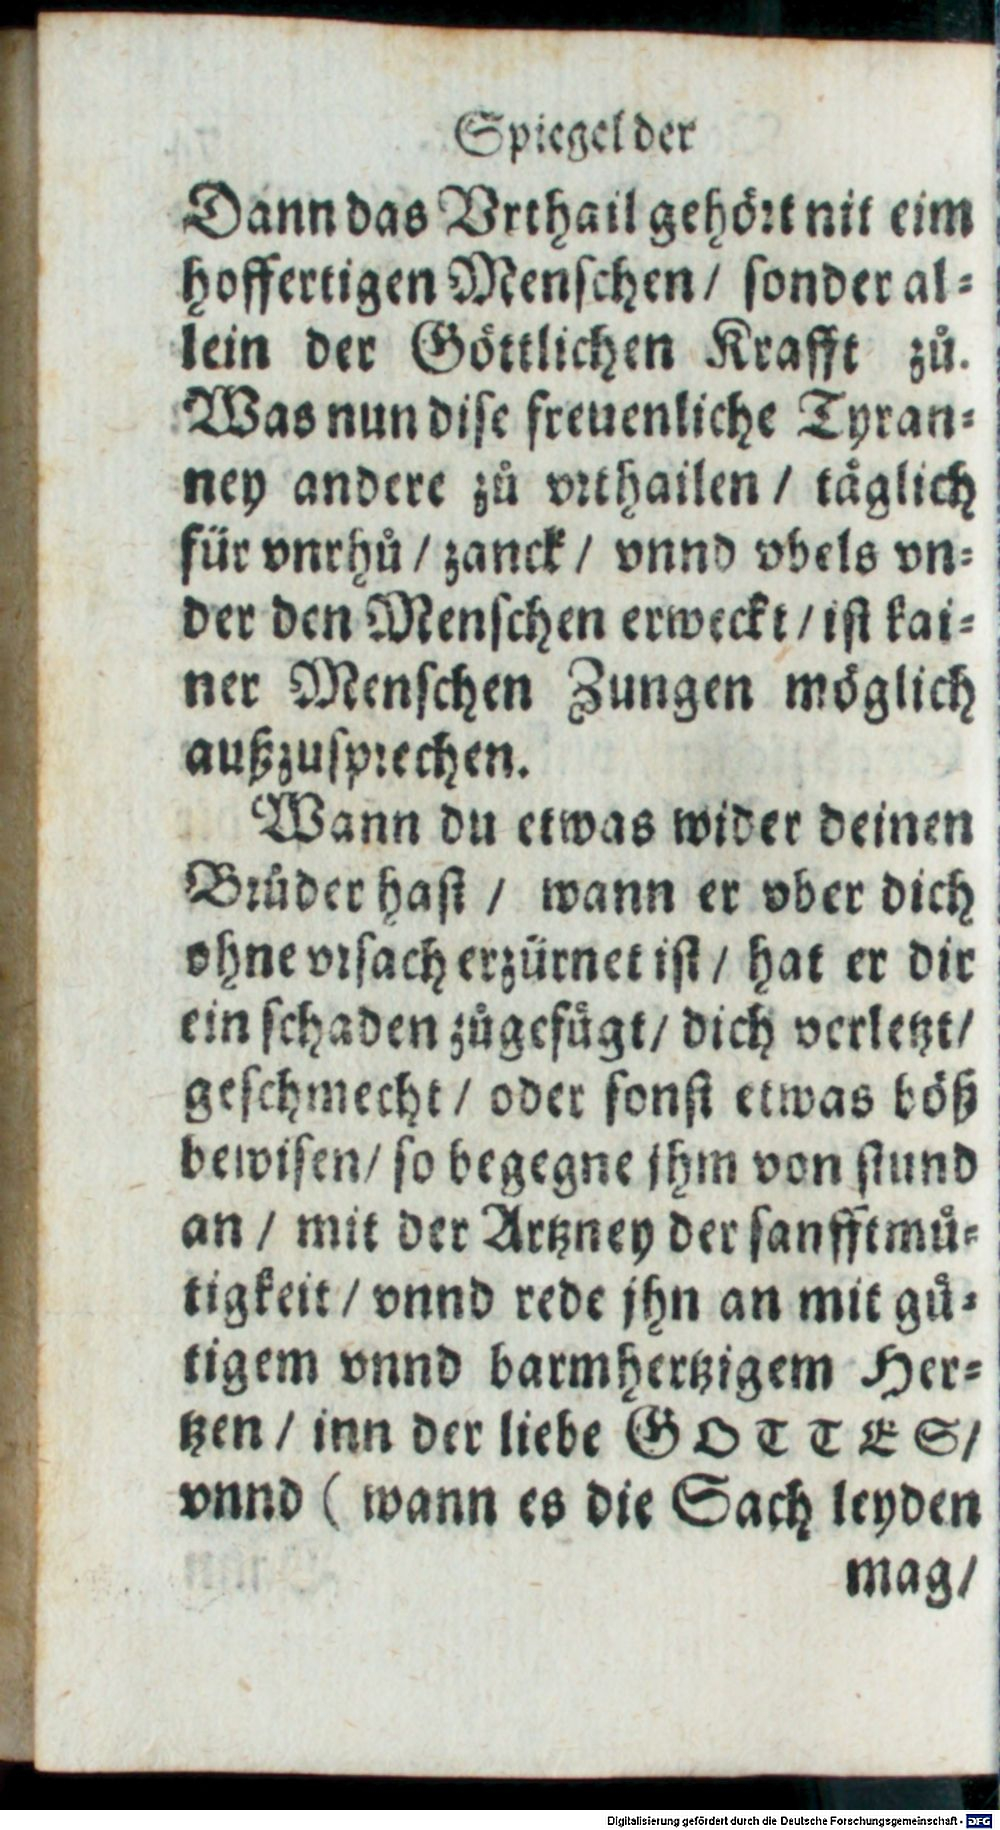 Spiegel der
Dann das Vrthail gehört nit eim
hoffertigen Menschen/ sonder al=
lein der Göttlichen Krafft zů.
Was nun dise freuenliche Tyran=
ney andere zů vrthailen / täglich
für vnrhů / zanck / vnnd vbels vn=
der den Menschen erweckt / ist kai=
ner Menschen Zungen möglich
außzusprechen.
Wann du etwas wider deinen
Brůder hast / wann er vber dich
ohne vrsach erzürnet ist / hat er dir
ein schaden zůgefůgt/ dich verletzt/
geschmecht / oder sonst etwas böß
bewisen/ so begegne jhm von stund
an / mit der Artzney der sanfftmů=
tigkeit / vnnd rede jhn an mit gů=
tigem vnnd barmhertzigem Her=
tzen / inn der liebe GOTTES/
vnnd ( wann es die Sach leyden
mag/
Digitalisierung gefördert durch die Deutsche Forschungsgemeinschaft - DFG